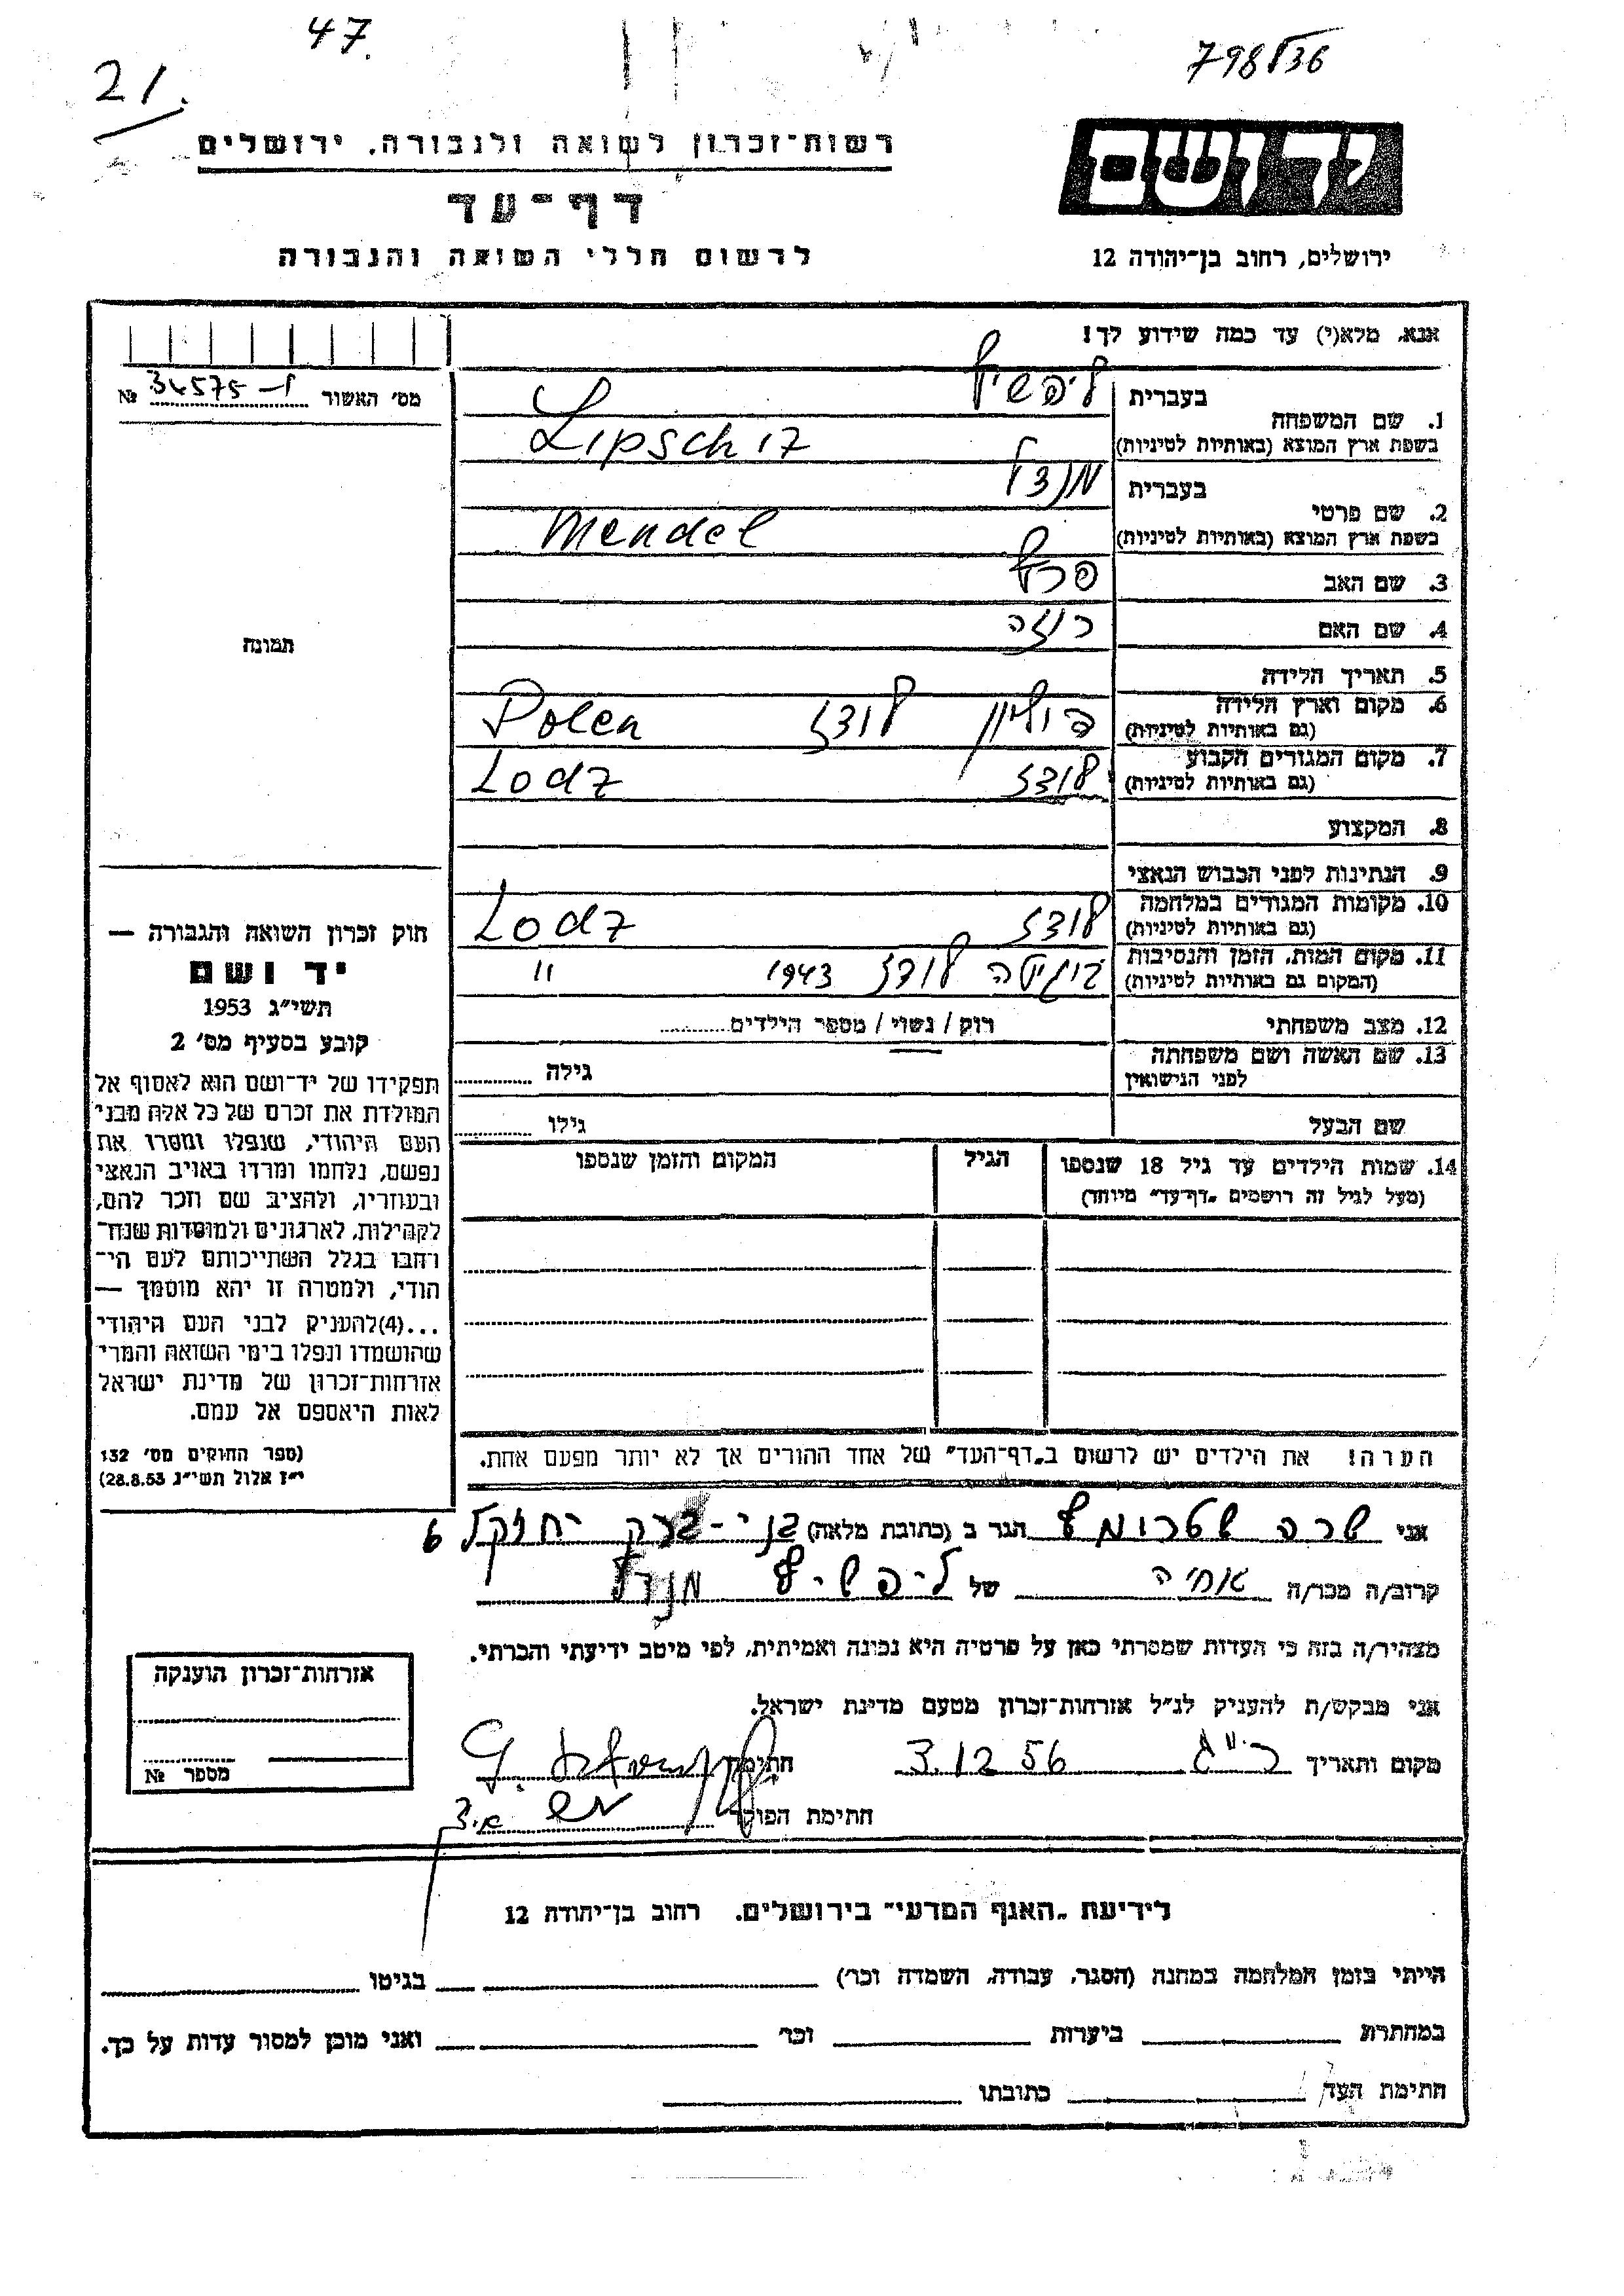 47.
21.
798/36
רשות־זכרון לשואה ולגבורה, ירושלים
דף־עד
לרשום חללי השואה והגבורה
יד ושם
ירושלים, רחוב בן־יהודה 12
אנא, מלא(י) עד כמה שידוע לך!
מס׳ האשור 34575 №
1. שם המשפחה
בעברית ליפשיץ
בשפת ארץ המוצא (באותיות לטיניות) Lipschiz
2. שם פרטי
בעברית מנדל
בשפת ארץ המוצא (באותיות לטיניות) Mendel
3. שם האב פרץ
4. שם האם רוזה
תמונה
5. תאריך הלידה
6. מקום וארץ הלידה פולין לודז Polen
(גם באותיות לטיניות)
7. מקום המגורים הקבוע לודז Lodz
(גם באותיות לטיניות)
8. המקצוע
9. הנתינות לפני הכבוש הנאצי
10. מקומות המגורים במלחמה לודז Lodz
(גם באותיות לטיניות)
11. מקום המות, הזמן והנסיבות לודז 1943 "
(המקום גם באותיות לטיניות)
12. מצב משפחתי רוק / נשוי / מספר הילדים
13. שם האשה ושם משפחתה
לפני הנישואין גילה
שם הבעל גילו
14. שמות הילדים עד גיל 18 שנספו הגיל המקום והזמן שנספו
(מעל לגיל זה רושמים „דף־עד” מיוחד)
הערה! את הילדים יש לרשום ב„דף־העד” של אחד ההורים אך לא יותר מפעם אחת.
חוק זכרון השואה והגבורה —
יד ושם
תשי״ג 1953
קובע בסעיף מס׳ 2
תפקידו של יד־ושם הוא לאסוף אל
המולדת את זכרם של כל אלה מבני
העם היהודי, שנפלו ומסרו את
נפשם, נלחמו ומרדו באויב הנאצי
ובעוזריו, ולהציב שם וזכר להם,
לקהילות, לארגונים ולמוסדות שנח־
רחבו בגלל השתייכותם לעם הי־
הודי, ולמטרה זו יהא מוסמך —
...(4)להעניק לבני העם היהודי
שהושמדו ונפלו בימי השואה והמרי
אזרחות־זכרון של מדינת ישראל
לאות היאספם אל עמם.
(ספר החוקים מס׳ 132
י״ז אלול תשי״ג 28.8.53)
אני שרה הגר ב (כתובת מלאה) בני-ברק יחזקאל 6
קרוב/ה מכר/ה של ליפשיץ מנדל
מצהיר/ה בזה כי העדות שמסרתי כאן על פרטיה היא נכונה ואמיתית, לפי מיטב ידיעתי והכרתי.
אני מבקש/ת להעניק לנ״ל אזרחות־זכרון מטעם מדינת ישראל.
מקום ותאריך 3.12.56 חתימת
חתימת הפוקד
אזרחות־זכרון הוענקה
מספר №
לידיעת „האגף המדעי” בירושלים. רחוב בן־יהודה 12
הייתי בזמן המלחמה במחנה (הסגר, עבודה, השמדה וכר׳) בגיטו
במחתרת ביערות וכר׳ ואני מוכן למסור עדות על כך.
חתימת העד כתובתו